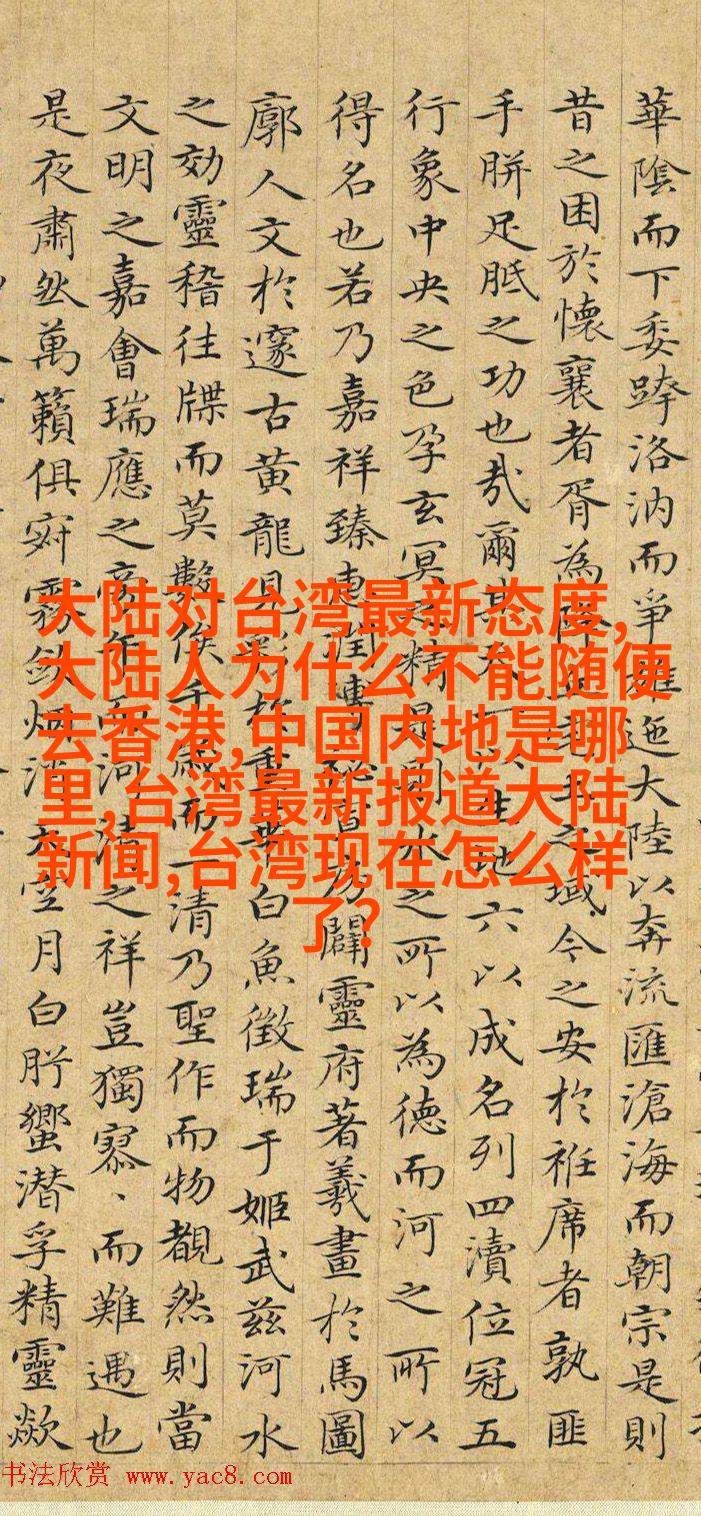 華陰而下委跨洛汭而爭雄迤大陸以奔流匯滄海而朝宗是則
昔之困於懷襄者胥為降丘之域今之安於袵席者孰匪
手胼足胝之功也哉爾其天一以生地六以成名列四瀆位冠五
行象中央之色孕玄冥之精是則水之所以為德而河之所以
得名也若乃嘉祥臻闢靈府著羲畫於馬圖
廓人文於邃古黃龍見重華白魚徵瑞于姬武茲河水
之効靈稽往牒而莫數俟千歲而一清乃聖作而物覩然則當
文明之嘉會瑞應之而河清之祥豈獨寡而難遇也
是夜肅然萬籟俱寂霧斂烟消天空月白肸蠁潜孚精靈歘
大陆对台湾最新态度,
大陆人为什么不能随便
去香港,中国内地是哪
里,台湾最新报道大陆
新闻,台湾现在怎么样
了?
书法欣赏 www.yac8.com